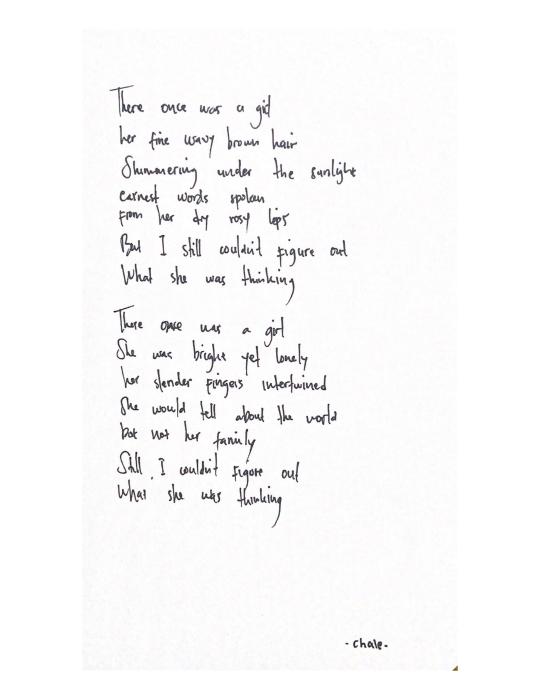 There once was a girl
her fine wavy brown hair
Shimmering under the sunlight
earnest words spoken
From her dry rosy lips
But I still couldn't figure out
What she was thinking
There once was a girl
She was bright yet lonely
her slender fingers intertwined
She would tell about the world
but not her family
Still, I couldn't figure out
What she was thinking
- chale -